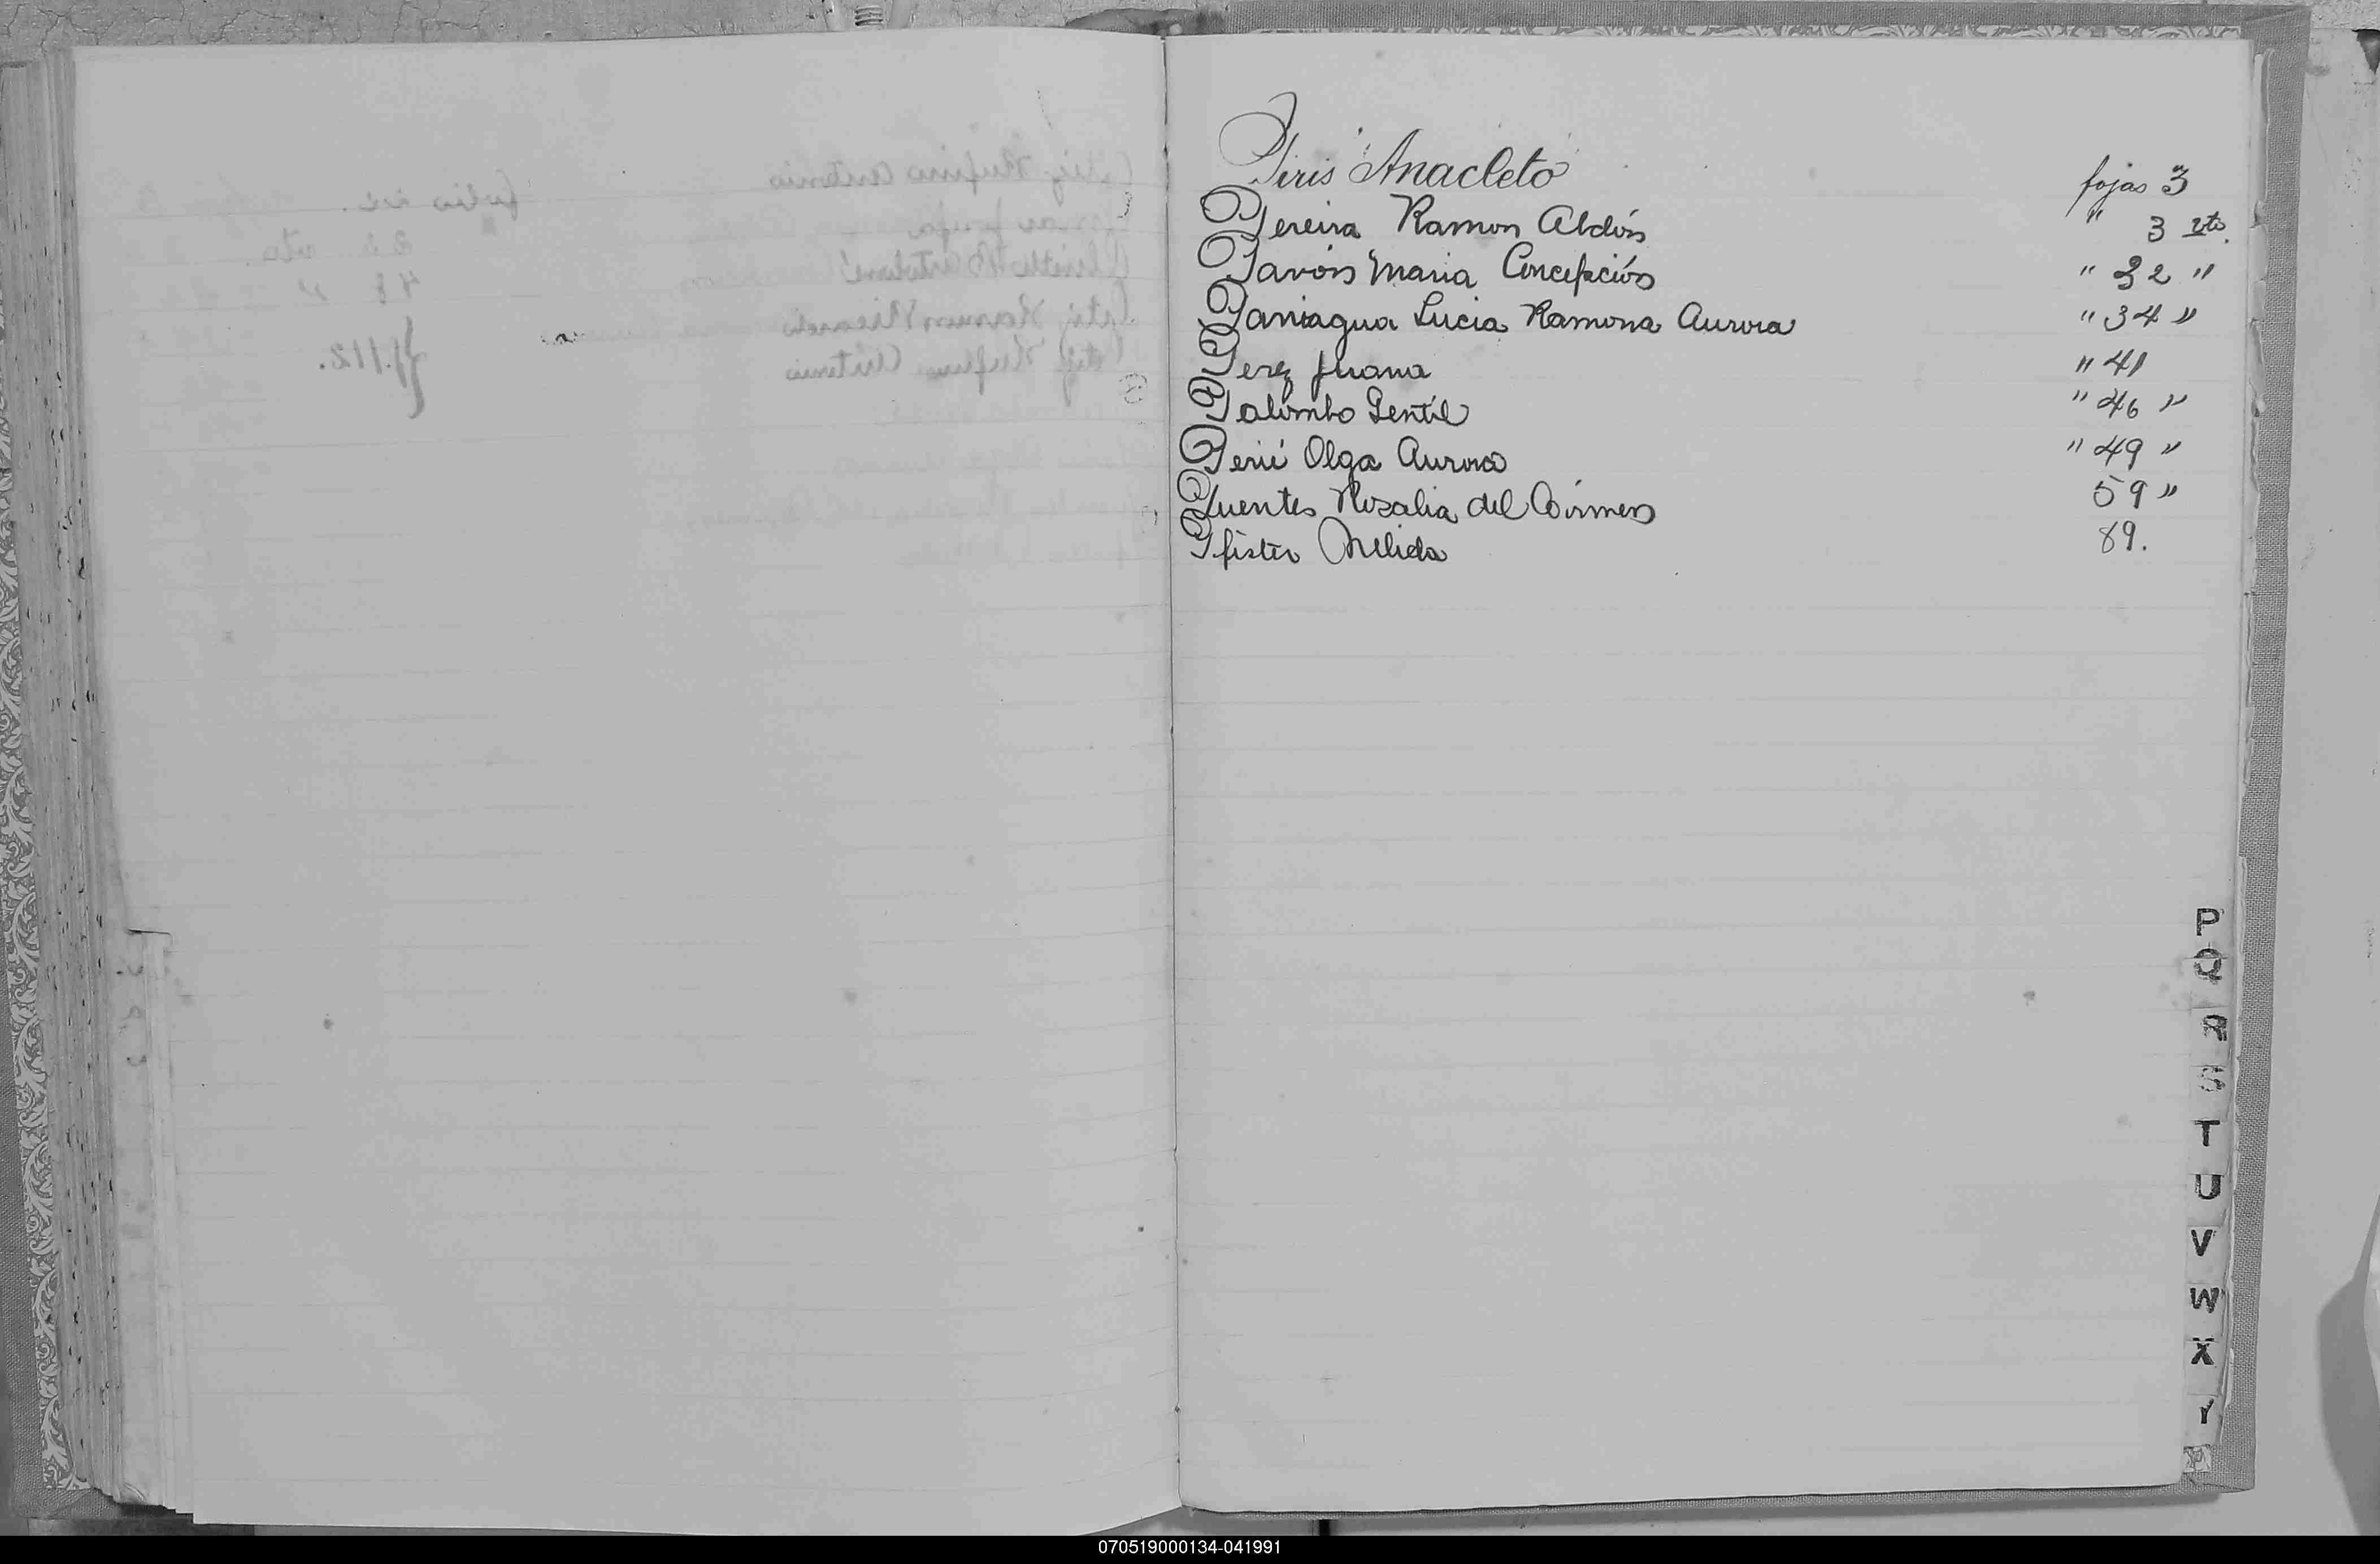 Piris Anacleto fojas 3
Pereira Ramon Abdón " 3 vto.
Pavón Maria Concepción " 32 "
Paniagua Lucia Ramona Aurora " 34 "
Perez Juana " 41
Palombo Gentil " 46 "
Perié Olga Aurora " 49 "
Puentes Rosalia del Cármen 59 "
Pfister Nélida 89.
P
Q
R
S
T
U
V
W
X
Y
070519000134-041991